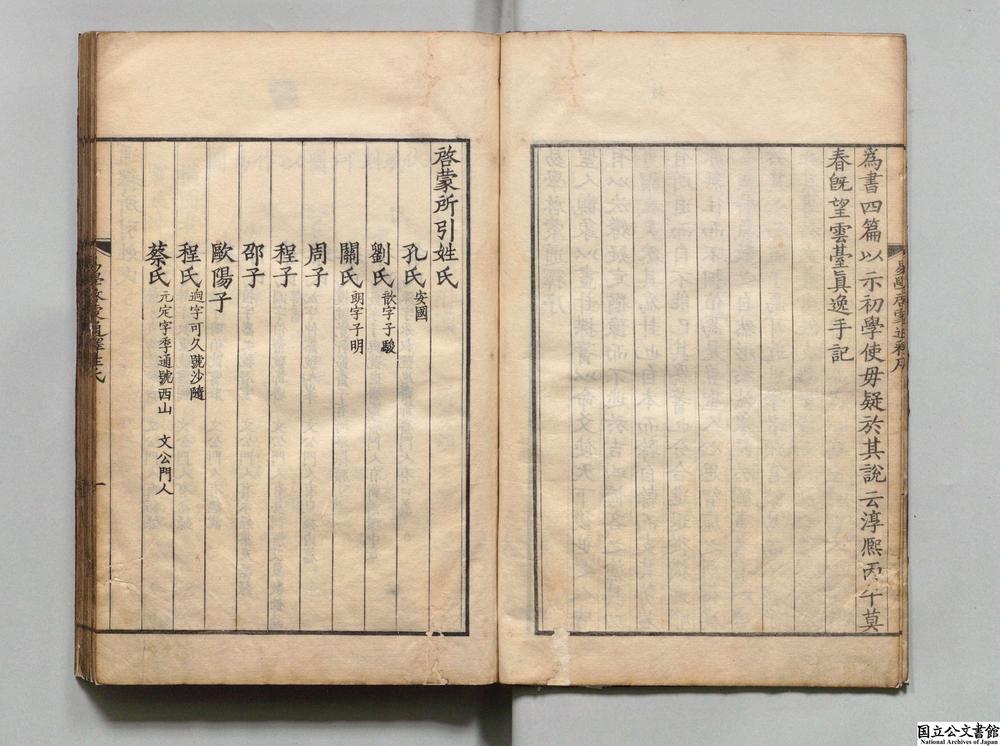 爲書四篇以示初學使毋疑於其說云淳熈丙午莫
春旣望雲臺眞逸手記
啓蒙所引姓氏
孔氏安國
劉氏歆字子駿
關氏朗字子明
周子
程子
邵子
歐陽子
程氏逈字可久號沙隨
蔡氏元定字季通號西山 文公門人
一
国立公文書館
National Archives of Japan